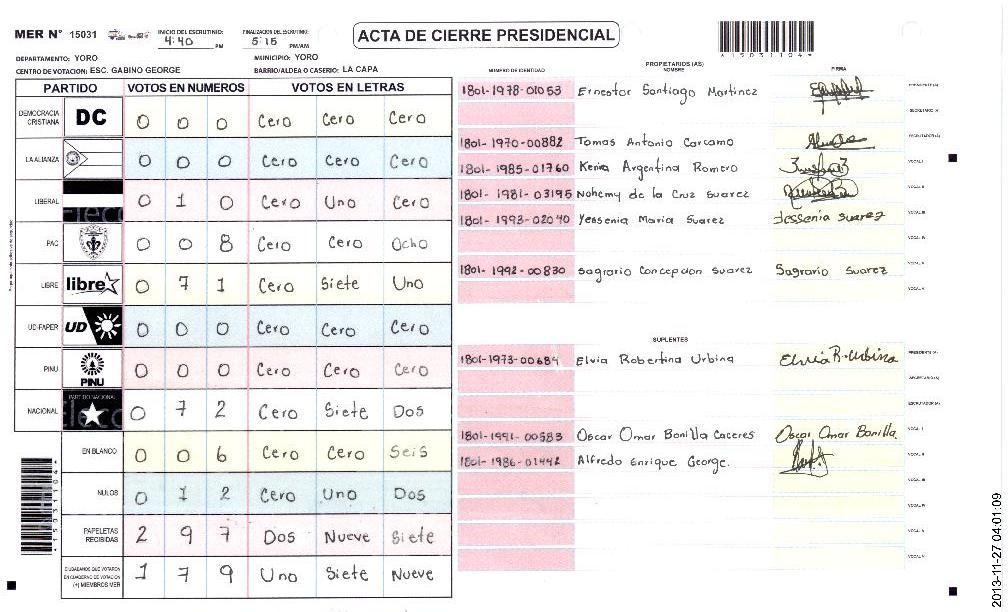 MER Nº 15031 INICIO DEL ESCRUTINIO: 4:40 PM FINALIZACION DEL ESCRUTINIO: 5:15 PM/AM
ACTA DE CIERRE PRESIDENCIAL
*15031104*
DEPARTAMENTO: YORO MUNICIPIO: YORO
CENTRO DE VOTACION: ESC. GABINO GEORGE BARRIO/ALDEA O CASERIO: LA CAPA
PARTIDO VOTOS EN NUMEROS VOTOS EN LETRAS
DEMOCRACIA CRISTIANA DC 0 0 0 Cero Cero Cero
LA ALIANZA 0 0 0 Cero Cero Cero
LIBERAL 0 1 0 Cero Uno Cero
PAC 0 0 8 Cero Cero Ocho
LIBRE libre 0 7 1 Cero Siete Uno
UD-FAPER UD 0 0 0 Cero Cero Cero
PINU PINU 0 0 0 Cero Cero Cero
NACIONAL PARTIDO NACIONAL 0 7 2 Cero Siete Dos
EN BLANCO 0 0 6 Cero Cero Seis
NULOS 0 1 2 Cero Uno Dos
PAPELETAS RECIBIDAS 2 9 7 Dos Nueve Siete
CIUDADANOS QUE VOTARON EN CUADERNO DE VOTACION (+) MIEMBROS MER 1 7 9 Uno Siete Nueve
PROPIETARIOS (AS)
NUMERO DE IDENTIDAD NOMBRE FIRMA
1801-1978-01053 Ernestor Santiago Martinez PRESIDENTE (A)
SECRETARIO (A)
1801-1970-00882 Tomas Antonio Carcamo ESCRUTADOR (A)
1801-1985-01760 Kenia Argentina Romero VOCAL I
1801-1981-03195 Nohemy de la Cruz Suarez VOCAL II
1801-1993-02040 Yessenia Maria Suarez Yessenia suarez VOCAL III
VOCAL IV
1801-1992-00830 Sagrario Concepcion Suarez Sagrario Suarez VOCAL V
SUPLENTES
1801-1973-00684 Elvia Robertina Urbina Elvia R. Urbina PRESIDENTE (A)
SECRETARIO (A)
ESCRUTADOR (A)
1801-1991-00583 Oscar Omar Bonilla Caceres Oscar Omar Bonilla VOCAL I
1801-1986-01442 Alfredo Enrique George. VOCAL II
VOCAL III
VOCAL IV
VOCAL V
2013-11-27 04:01:09